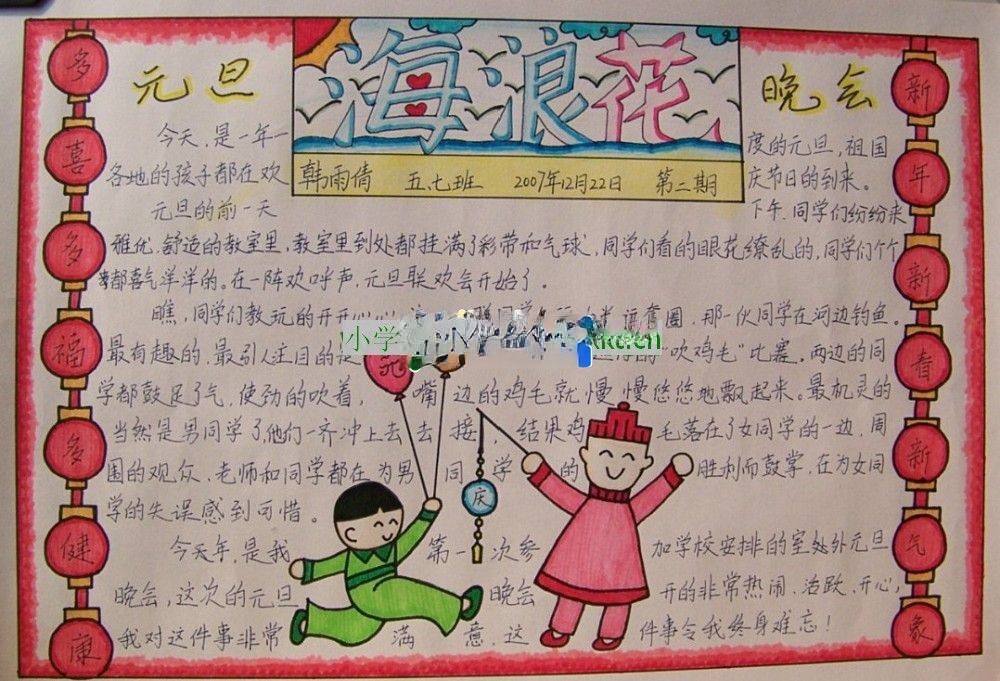 海浪花
韩雨倩 五.七班 2007年12月22日 第二期
元旦 晚会
今天,是一年一 度的元旦,祖国
各地的孩子都在欢 庆节日的到来。
元旦的前一天 下午,同学们纷纷来
雅优,舒适的教室里,教室里到处都挂满了彩带和气球,同学们看的眼花缭乱的,同学们个个
都喜气洋洋的。在一阵欢呼声,元旦联欢会开始了。
瞧,同学们教玩的开开心心 圈,那一伙同学在河边钓鱼。
最有趣的,最引人注目的是 的"吹鸡毛"比赛。两边的同
学都鼓足了气,使劲的吹着, 嘴边的鸡毛就慢慢悠悠地飘起来。最机灵的
当然是男同学了,他们一齐冲上去去接,结果鸡毛落在了女同学的一边,周
围的观众,老师和同学都在为男同学的胜利而鼓掌,在为女同
学的失误感到可惜。
今天年,是我第一次参加学校安排的室处外元旦
晚会,这次的元旦晚会开的非常热闹,活跃,开心,
我对这件事非常满意,这件事令我终身难忘!
多喜多福多健康
新年新春新气象
庆
小学